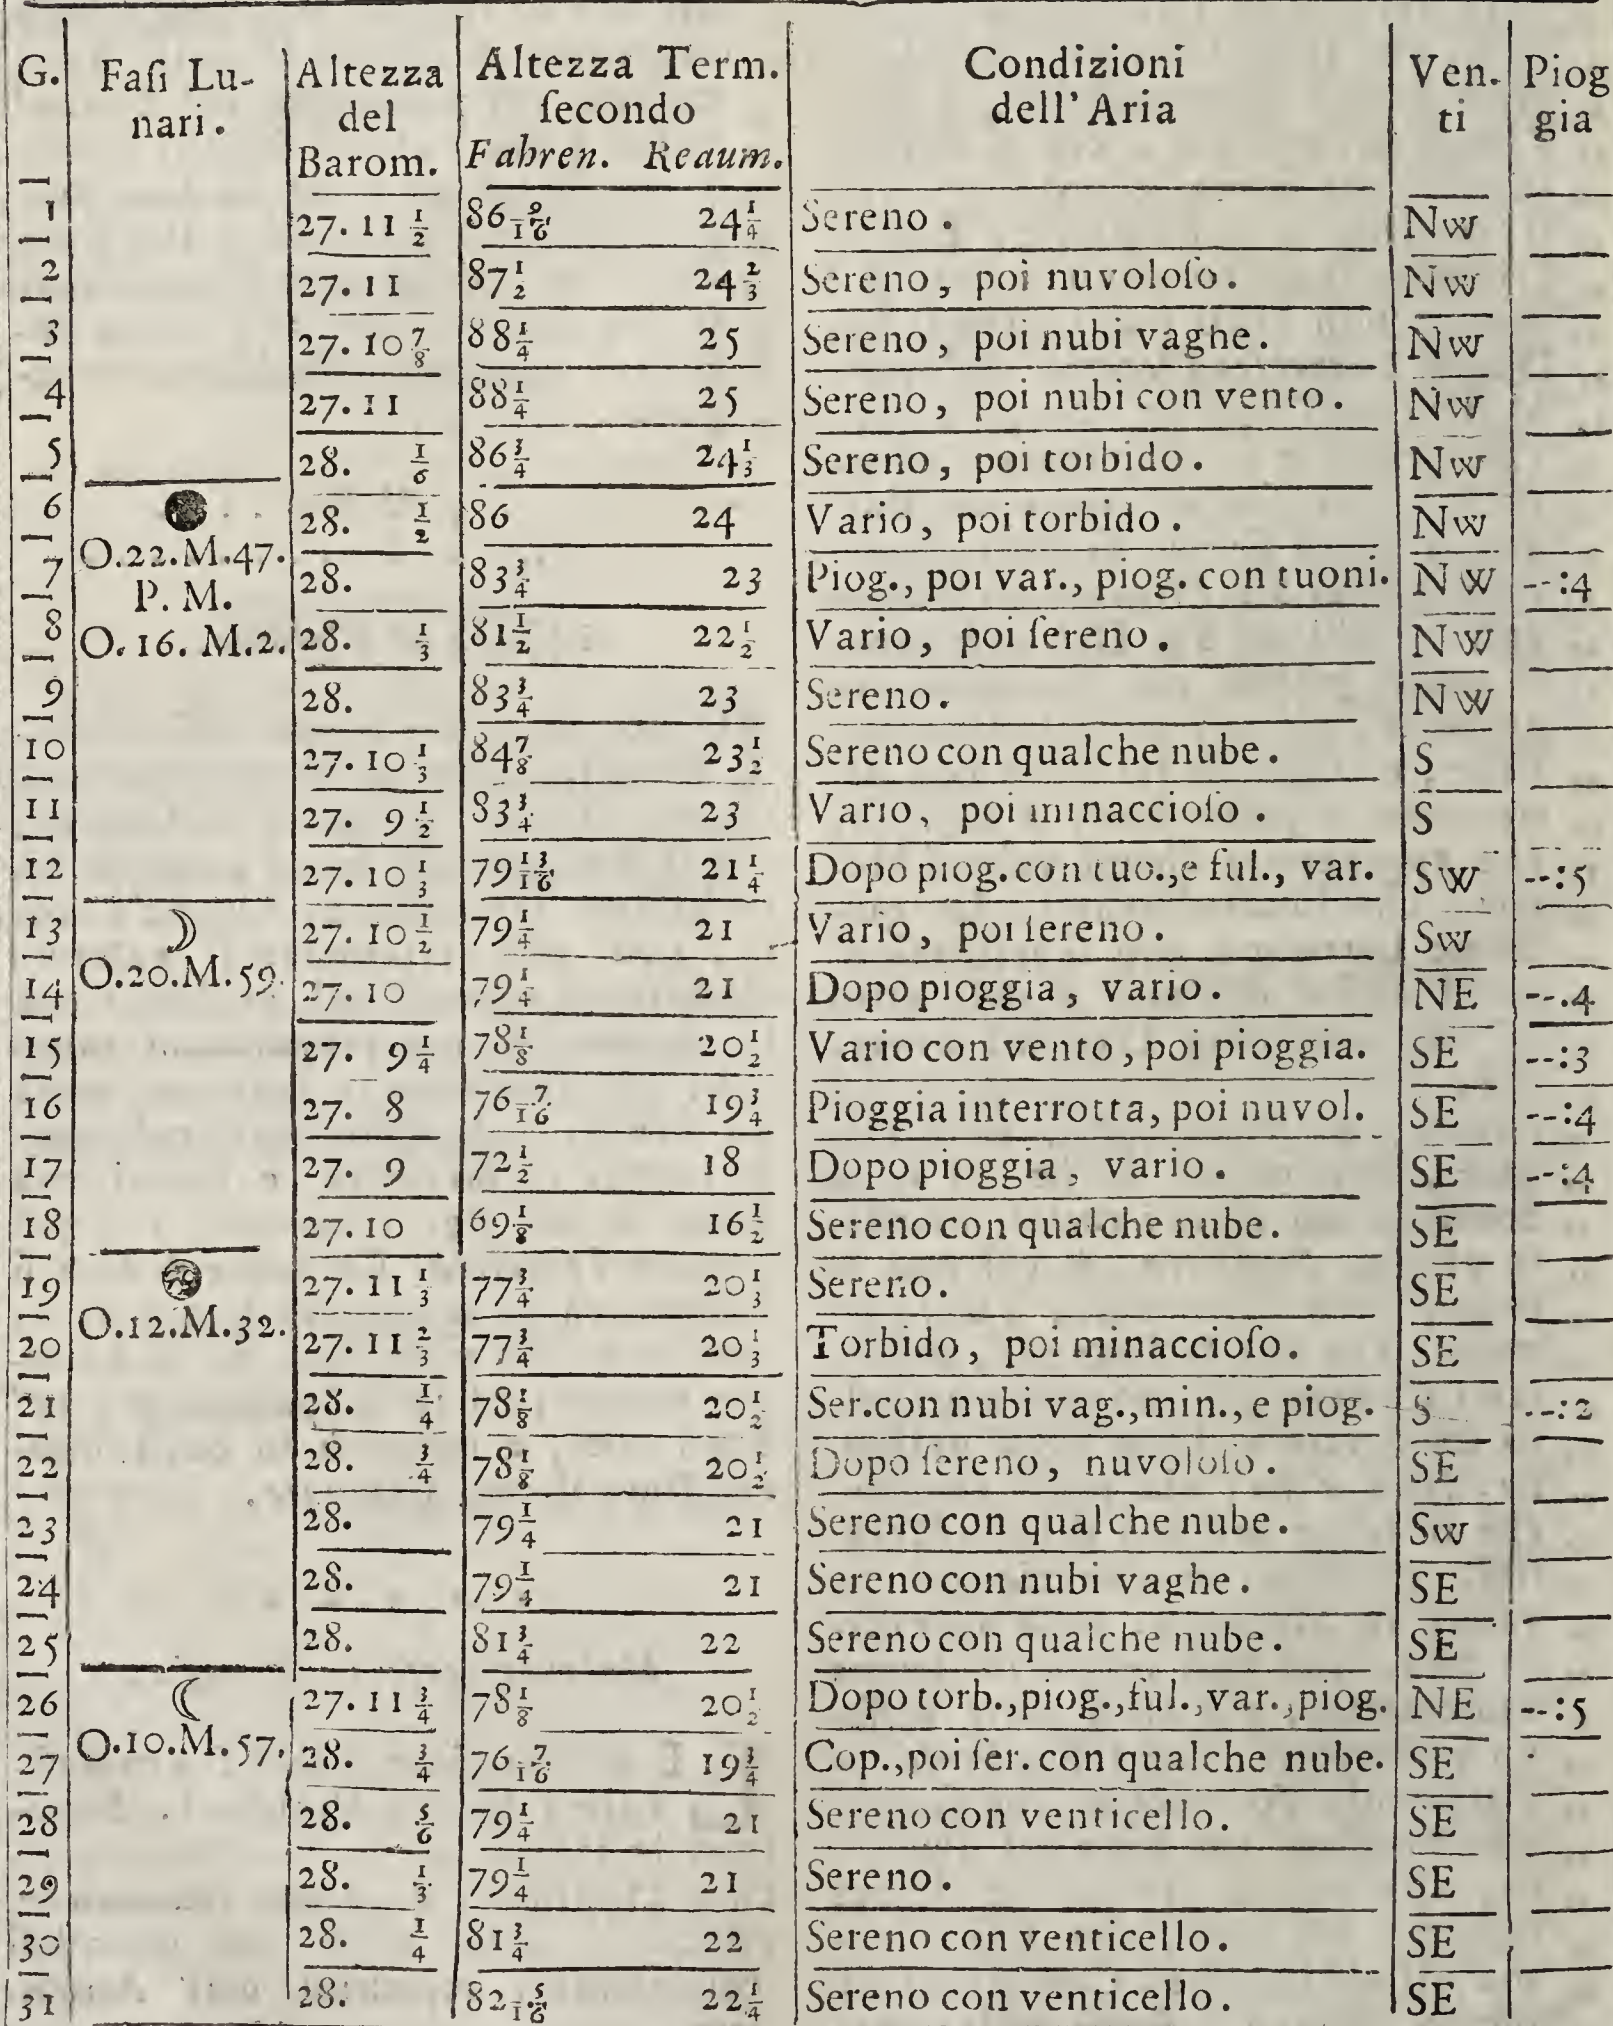 G. Faſi Lunari. Altezza del Barom. Altezza Term. ſecondo Fahren. Reaum. Condizioni dell'Aria Venti Pioggia
1 27. 11 1/2 86 9/16 24 1/4 Sereno. Nw
2 27. 11 87 1/2 24 2/3 Sereno, poi nuvoloſo. Nw
3 27. 10 7/8 88 1/4 25 Sereno, poi nubi vaghe. Nw
4 27. 11 88 1/4 25 Sereno, poi nubi con vento. Nw
5 28. 1/6 86 3/4 24 1/3 Sereno, poi torbido. Nw
6 ● 28. 1/2 86 24 Vario, poi torbido. Nw
O.22.M.47.
7 P. M. 28. 83 3/4 23 Piog., poi var., piog. con tuoni. NW --:4
8 O. 16. M.2. 28. 1/3 81 1/2 22 1/2 Vario, poi ſereno. NW
9 28. 83 3/4 23 Sereno. NW
10 27. 10 1/3 84 7/8 23 1/2 Sereno con qualche nube. S
11 27. 9 1/2 83 3/4 23 Vario, poi minaccioſo. S
12 27. 10 1/3 79 13/16 21 1/4 Dopo piog. con tuo., e ful., var. SW --:5
13 ☽ 27. 10 1/2 79 1/4 21 Vario, poi ſereno. Sw
14 O.20.M.59. 27. 10 79 1/4 21 Dopo pioggia, vario. NE --.4
15 27. 9 1/4 78 1/8 20 1/2 Vario con vento, poi pioggia. SE --:3
16 27. 8 76 7/16 19 3/4 Pioggia interrotta, poi nuvol. SE --:4
17 27. 9 72 1/2 18 Dopo pioggia, vario. SE --:4
18 27. 10 69 1/8 16 1/2 Sereno con qualche nube. SE
19 27. 11 1/3 77 3/4 20 1/3 Sereno. SE
20 O.12.M.32. 27. 11 2/3 77 3/4 20 1/3 Torbido, poi minaccioſo. SE
21 28. 1/4 78 1/8 20 1/2 Ser. con nubi vag., min., e piog. S --:2
22 28. 3/4 78 1/8 20 1/2 Dopo ſereno, nuvoloſo. SE
23 28. 79 1/4 21 Sereno con qualche nube. Sw
24 28. 79 1/4 21 Sereno con nubi vaghe. SE
25 28. 81 3/4 22 Sereno con qualche nube. SE
26 ☾ 27. 11 3/4 78 1/8 20 1/2 Dopo torb., piog., ful., var., piog. NE --:5
27 O.10.M.57. 28. 3/4 76 7/16 19 3/4 Cop., poi ſer. con qualche nube. SE
28 28. 5/6 79 1/4 21 Sereno con venticello. SE
29 28. 1/3 79 1/4 21 Sereno. SE
30 28. 1/4 81 3/4 22 Sereno con venticello. SE
31 28. 82 5/16 22 1/4 Sereno con venticello. SE